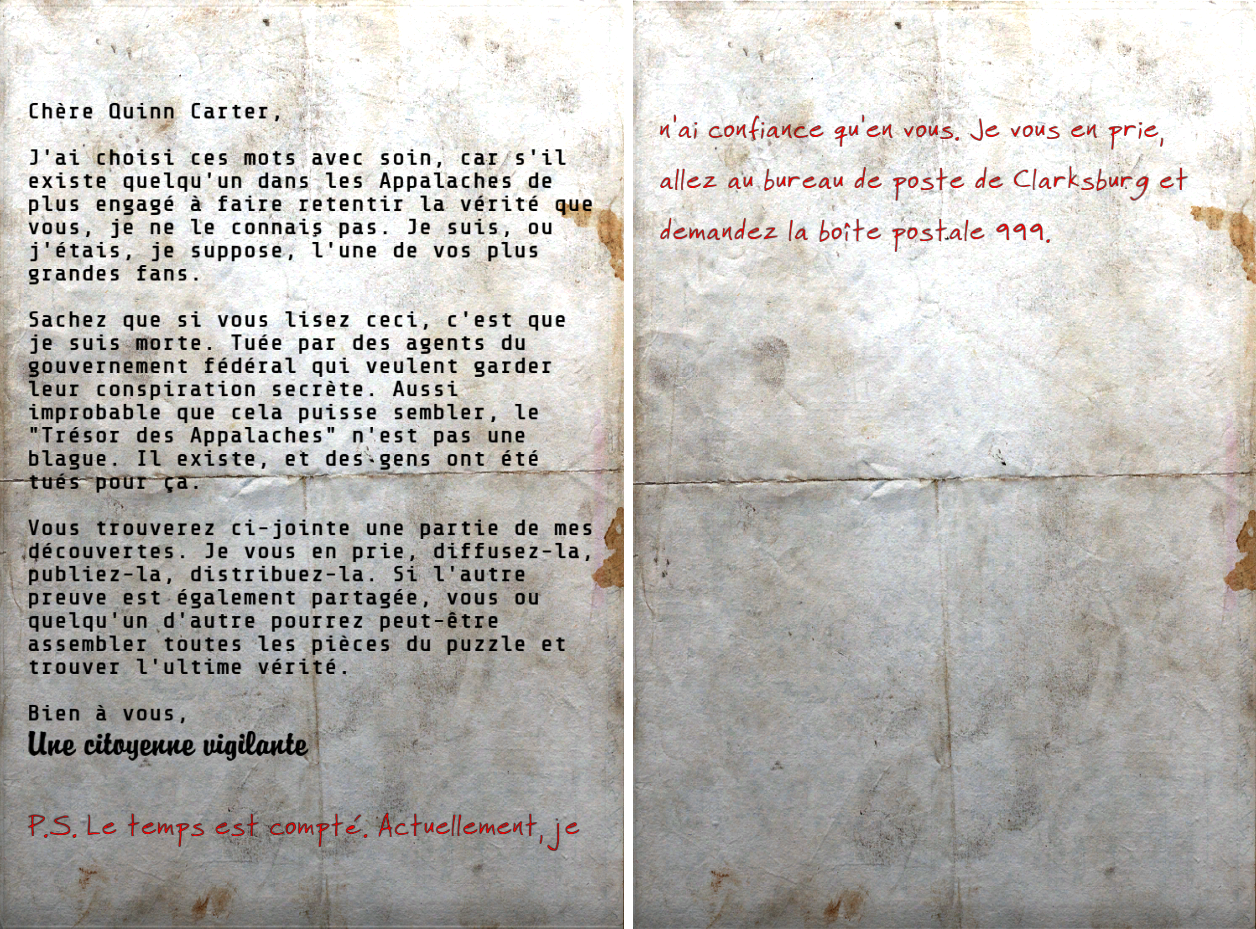 Chère Quinn Carter,
J'ai choisi ces mots avec soin, car s'il
existe quelqu'un dans les Appalaches de
plus engagé à faire retentir la vérité que
vous, je ne le connais pas. Je suis, ou
j'étais, je suppose, l'une de vos plus
grandes fans.
Sachez que si vous lisez ceci, c'est que
je suis morte. Tuée par des agents du
gouvernement fédéral qui veulent garder
leur conspiration secrète. Aussi
improbable que cela puisse sembler, le
"Trésor des Appalaches" n'est pas une
blague. Il existe, et des gens ont été
tués pour ça.
Vous trouverez ci-jointe une partie de mes
découvertes. Je vous en prie, diffusez-la,
publiez-la, distribuez-la. Si l'autre
preuve est également partagée, vous ou
quelqu'un d'autre pourrez peut-être
assembler toutes les pièces du puzzle et
trouver l'ultime vérité.
Bien à vous,
Une citoyenne vigilante
P.S. Le temps est compté. Actuellement, je
n'ai confiance qu'en vous. Je vous en prie,
allez au bureau de poste de Clarksburg et
demandez la boîte postale 999.